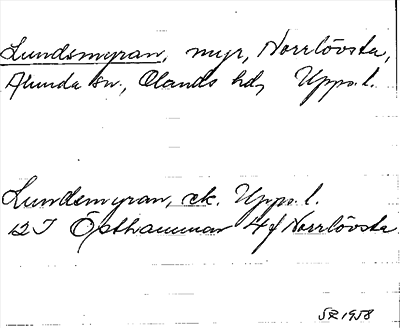 Lundsmyran, myr, Norrlövsta,
Alunda sn, Olands hd, Upps. l.
Lundsmyran, ek. Upps. l.
12 I Östhammar 4f Norrlövsta
SZ 1958